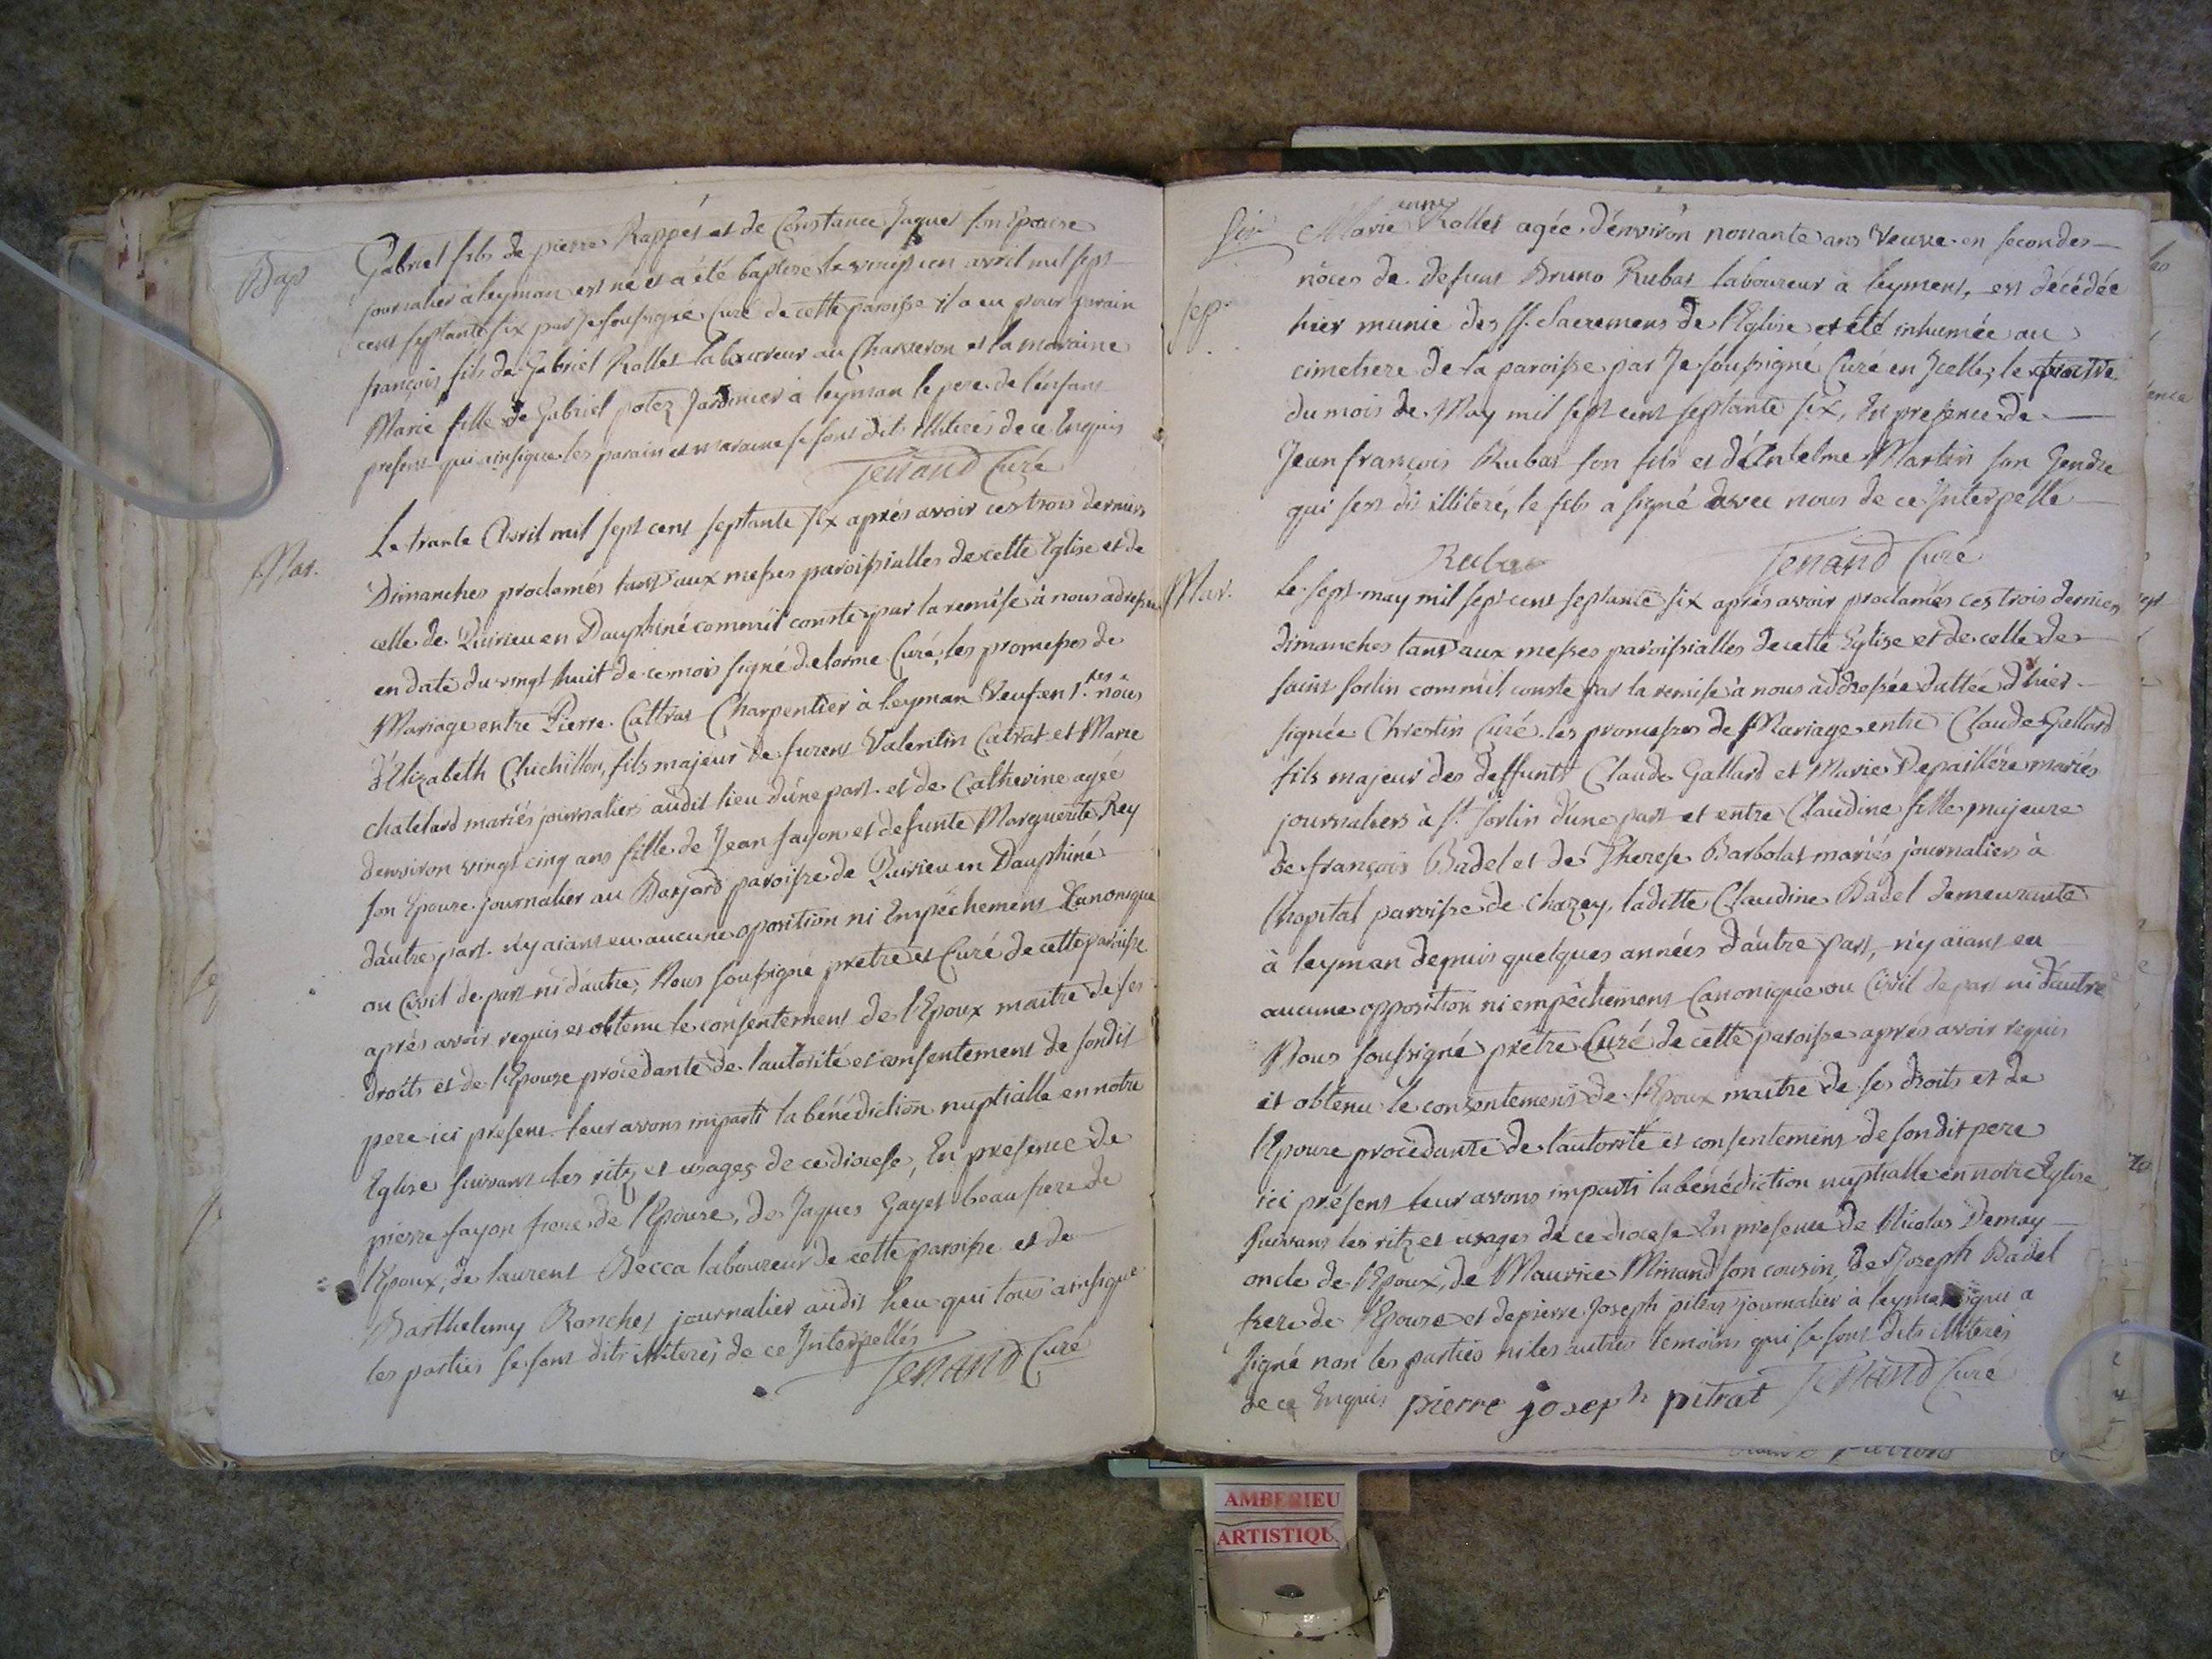 Bap
Gabriel fils de pierre Rappet et de Constance Jaquet son Epouse
journalier à leyman est né et a été baptisé le vingt un avril mil sept
cent septante six par Je soussigné Curé de cette paroisse il a eu pour parain
françois fils de Gabriel Rollet laboureur au Chanveron et la maraine
Marie fille de Gabriel potez Jardinier à leyman le pere de l'enfant
present qui ainsique les parain et maraine se sont dits illiterés de ce Enquis
Tenand Curé
Mar.
Le trante Avril mil sept cent septante six aprés avoir ces trois derniers
Dimanches proclamés tant aux messes paroissialles de cette Eglise et de
celle de Quirieu en Dauphiné commil conste par la remise à nous adressée
en date du vingt huit de ce mois signé delorme Curé, les promesses de
Mariage entre Pierre Cattrat Charpentier à leyman Veuf en 1.res nôces
d'Elizabeth Chichillon, fils majeur de furent Valentin Catrat et Marie
chatelard mariés journaliers audit lieu d'une part. et de Catherine agée
denviron vingt cinq ans fille de Jean fayon et defunte Marguerite Rey
son Epouse journalier au Barjard paroisse de Quirieu en Dauphiné
d'autre part. n'y aiant eu aucune oposition ni Empêchement Canonique
ou Civil de part ni d'autre, Nous soussigné prêtre et Curé de cette paroisse
aprés avoir requis et obtenu le consentement de l'Epoux maitre de ses
droits et de l'Epouse procedante de l'autorité et consentement de sondit
pere ici present leur avons imparti la bénédiction nuptialle en notre
Eglise suivant les ritz et usages de ce diocese, En presence de
pierre fayon frere de l'Epouse, de Jaques Gayet beaufrere de
l'Epoux, de laurent Becca laboureur de cette paroisse et de
Barthelemy Ronchet journalier audit lieu qui tous ainsique
les parties se sont dits illiterés de ce Interpellés
Tenand Curé
Marie anne Rollet agée d'environ nonante ans Veuve en secondes
nôces de defunt Bruno Rubat laboureur à leyment, est décédée
sep.
hier munie des SS. Sacremens de l'Eglise et été inhumée au
cimetiere de la paroisse par Je soussigné Curé en Icelle, le quatre
du mois de May mil sept cent septante six, En presence de
Jean françois Rubat son fils et d'Antelme Martin son Gendre
qui s'est dit illiteré, le fils a signé avec nous de ce Interpellé
Rubat Tenand Curé
Mar.
Le sept may mil sept cent septante six aprés avoir proclamés ces trois derniers
dimanches tant aux messes paroissialles de cette Eglise et de celle de
saint sorlin commil conste par la remise à nous addressée dattée d'hier
signée Chrestin Curé les promesses de Mariage entre Claude Gallard
fils majeur des deffunts Claude Gallard et Marie Depaillére mariés
journaliers à St. sorlin d'une part et entre Claudine fille majeure
de françois Badel et de Therese Barbolat mariés journaliers à
l'hopital paroisse de Chazey, laditte Claudine Badel demeurante
à leyman depuis quelques années d'autre part, n'y aiant eu
aucune opposition ni empêchement Canonique ou Civil de part ni d'autre
Nous soussigné prêtre Curé de cette paroisse aprés avoir requis
et obtenu le consentement de l'Epoux maitre de ses droits et de
l'Epouse procedante de l'autorité et consentement de sondit pere
ici présent leur avons imparti la bénédiction nuptialle en notre Eglise
suivant les ritz et usages de ce diocese En presence de Nicolas Demay
oncle de l'Epoux, de Maurice Minand son cousin, de Joseph Badel
frere de l'Epouse et de pierre Joseph pitrat journalier à leyman qui a
signé non les parties ni les autres temoins qui se sont dits illiterés
de ce Enquis pierre joseph pitrat Tenand Curé
AMBERIEU
ARTISTIQU